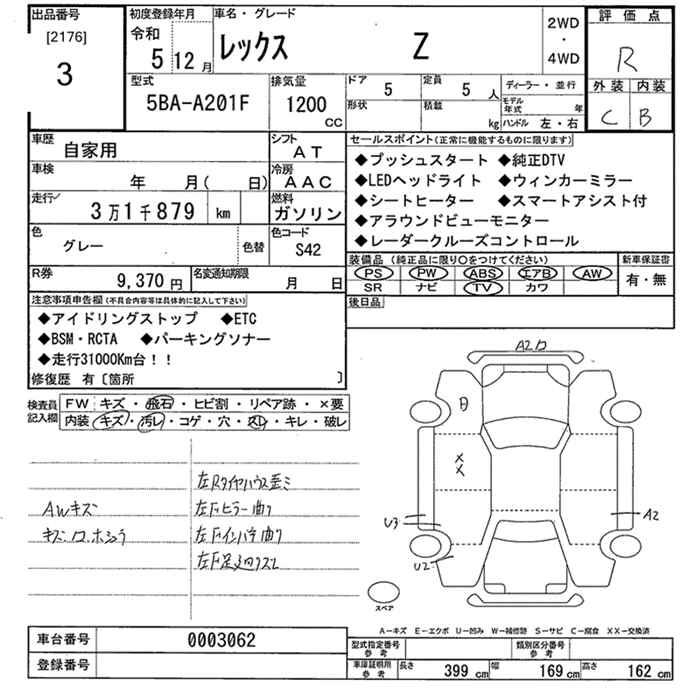 出品番号
[2176]
3
初度登録年月
令和
5 12 月
車名・グレード
レックス Z
2WD
・
4WD
評価点
R
外装 内装
C B
型式
5BA-A201F
排気量
1200
CC
ドア 5
定員 5 人
形状
積載 kg
ディーラー・並行
モデル年式 年
ハンドル 左・右
車歴
自家用
シフト
AT
車検
年 月( 日)
冷房
AAC
走行
3万1千879 km
燃料
ガソリン
色
グレー
色替
色コード
S42
R券
9,370 円
名変通知期限
月 日
セールスポイント(正常に機能するものに限ります)
◆プッシュスタート ◆純正DTV
◆LEDヘッドライト ◆ウィンカーミラー
◆シートヒーター ◆スマートアシスト付
◆アラウンドビューモニター
◆レーダークルーズコントロール
装備品 (純正品に限り○をつけてください)
PS PW ABS エアB AW
SR ナビ TV カワ
新車保証書
有・無
後日品
注意事項申告欄(不具合内容等は具体的に記入して下さい)
◆アイドリングストップ ◆ETC
◆BSM・RCTA ◆パーキングソナー
◆走行31000Km台!!
修復歴 有〔箇所 〕
検査員記入欄
FW キズ・飛石・ヒビ割・リペア跡・×要
内装 キズ・汚レ・コゲ・穴・スレ・キレ・破レ
AWキズ
左Rタイヤハウス歪ミ
左Fピラー曲り
左Fインパネ曲り
A2
X
X
U3
A2
U2
スペア
A-キズ E-エクボ U-凹み W-補修跡 S-サビ C-腐食 XX-交換済
車台番号 0003062
登録番号
型式指定番号 参考
類別区分番号 参考
車庫証明用 参考
長さ 399 cm 幅 169 cm 高さ 162 cm